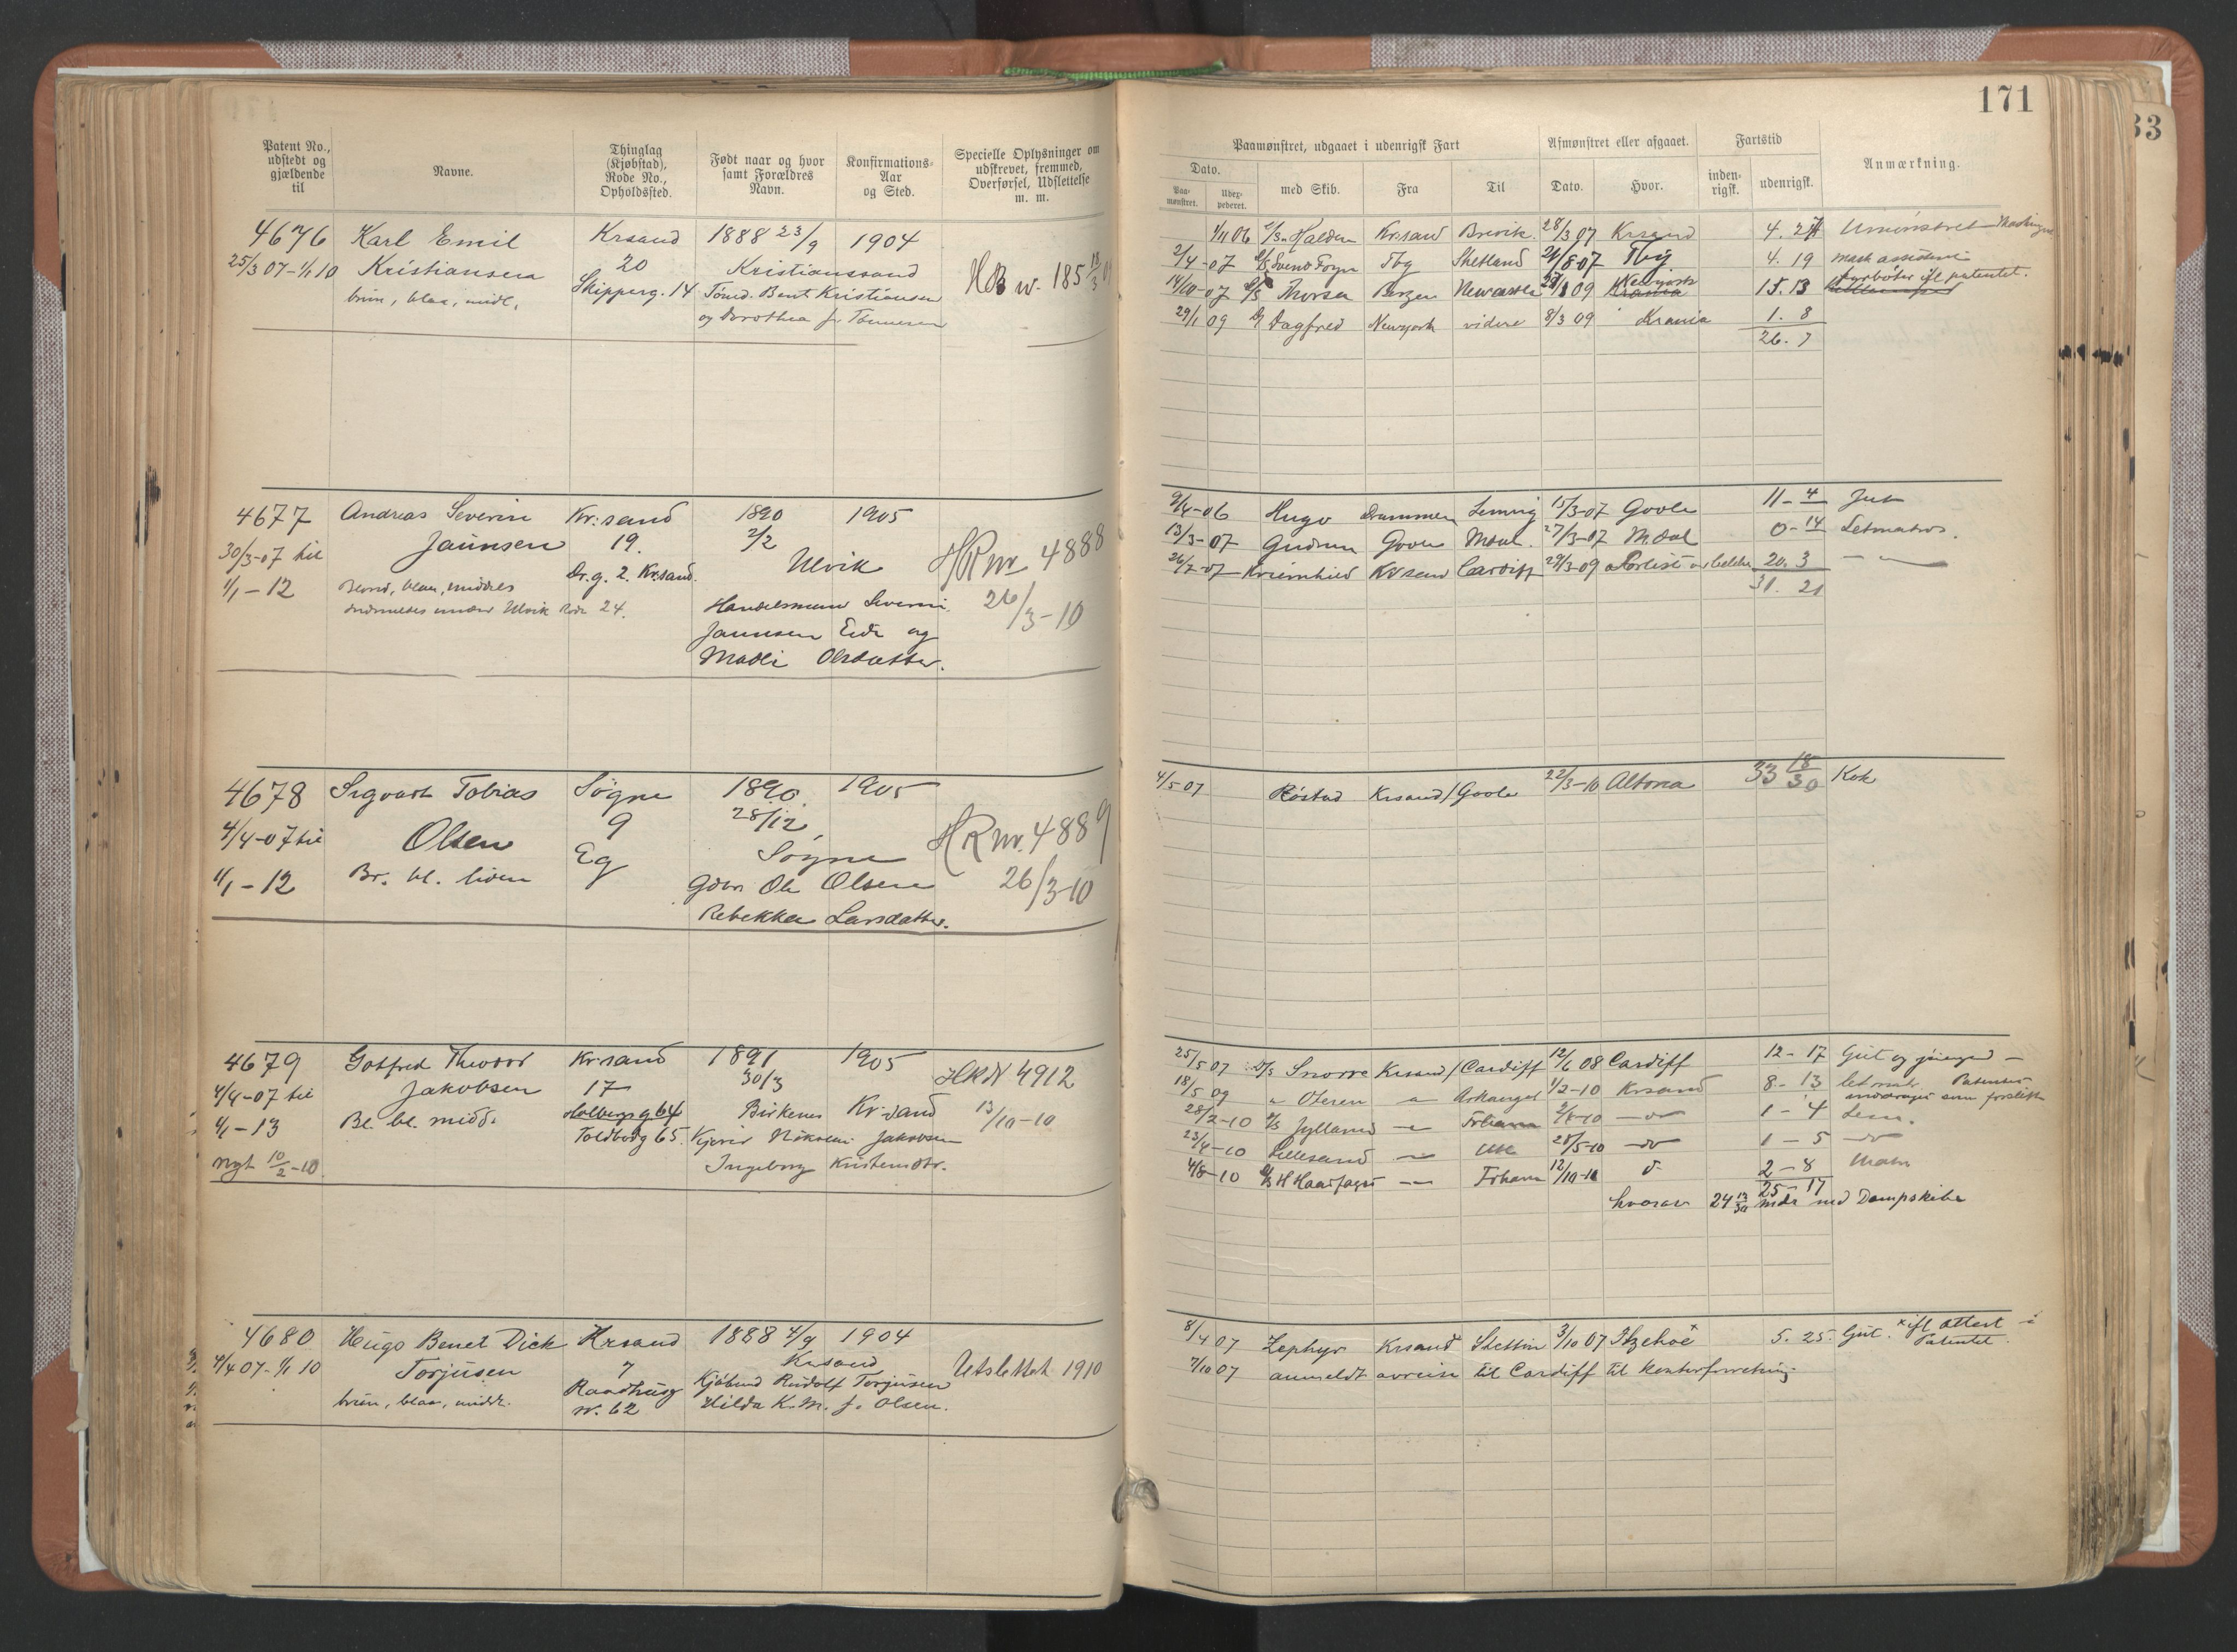 171
33
Patent No., udstedt og gjældende til
Navne.
Thinglag (Kjøbstad), Rode No., Opholdssted.
Født naar og hvor samt Forældres Navn.
Konfirmations-Aar og Sted.
Specielle Oplysninger om udskrevet, fremmed, Overførsel, Udslettelse m. m.
Paamønstret, udgaaet i udenrigsk Fart
Afmønstret eller afgaaet.
Fartstid
Anmærkning.
Dato.
Paa-mønstret.
Udex-pederet.
med Skib.
Fra
Til
Dato.
Hvor.
inden-rigsk.
udenrigsk.
4676 Karl Emil Krsand 1888 23/9 1904
25/3 07 - 1/1 10 Kristiansen 20 Kristianssand
brun, blaa, midl. Skipperg. 14 Tømd. Bent Kristiansen
og Dorothea f. Tønnesen
1/11 06 Halden Kr.sand Brevik 28/3 07 Krsand 4. 27
2/4-07 Svend Foyn Tbg Shetland 21/8 07 Tbg 4. 19 mask assistent
14/10-07 Thorsa Bergen Newcastle Newyork 15. 13
29/1 09 Dagfred Newyork videre 8/3 09 Krania 1. 8
26. 7
4677 Andreas Severin Kr:sand 1890 1905
30/3-07 til Jaunsen 19. 2/2
1/1-12 Dr.g. 2. Krsand. Ulvik HR nr 4888
Blond, blaa, middels
Ulvik Rode 24. Handelsmand Severin 26/3-10
Jaunsen Eide og
Madli Olsdatter.
9/4-06 Hugo Drammen 15/3-07 Goole 11-4
13/3-07 Gudrun Goole Mdal. 27/3-07 M.dal 0-14 Letmatros.
Kriemhild Kr sand Cardiff 29/3-09 20. 3
31. 21
4678 Sigvart Tobias Søgne 1890 1905
4/4-07 til Olsen 9 28/12
1/1-12 Br. bl. liden Eg Søgne HR nr. 4889
Gdbr. Ole Olsen 26/3-10
Rebekka Larsdatter.
4/5 07 Røstad Krsand / Goole 22/3-10 Altona 33 18/30 Kok
4679 Gotfred Theodor Kr:sand 1891 1905
4/4-07 til Jakobsen 17 30/3 HR N 4912
1/1-13 Bl. bl. midd. Holbergs g 64 Birkenes Kr.sand 13/10-10
Toldbodg 65.
Nyt 10/2-10. Ingeborg
25/5 07 D/S Snorre Krsand / Cardiff 12/6 08 Cardiff 12-17
18/5 09 Oteren Arkangel 1/2-10 Krsand 8-13
28/2-10 Jylland 1-4
23/4-10 Lillesand 28/5-10 1-5
4/8-10 H Haarfagre 12/10-10 2-8 Matr
25-17
hvorav 24 13/30 mdr med Dampskibe
4680 Hugo Benet Dick Krsand 1888 4/9 1904
4/4 07-1/1 10 Torjusen 7 Krsand
brun, blaa, midd. Raadhusg Kjøbmd Rudolf Torjusen Utslettet 1910
nr. 62 Hilda K. M. f. Olsen.
8/4 07 Zephyr Krsand Stettin 3/10 07 Itzehoe x 5. 25. Gut. x ifl attest i Patentet.
7/10 07 anmeldt avreise til Cardiff til Kontorforretning